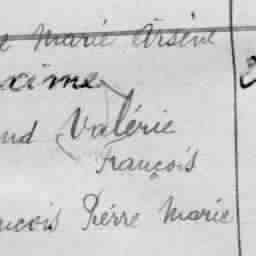 e Marie Arsène
xime
nd Valérie
François
nçois Pierre Marie